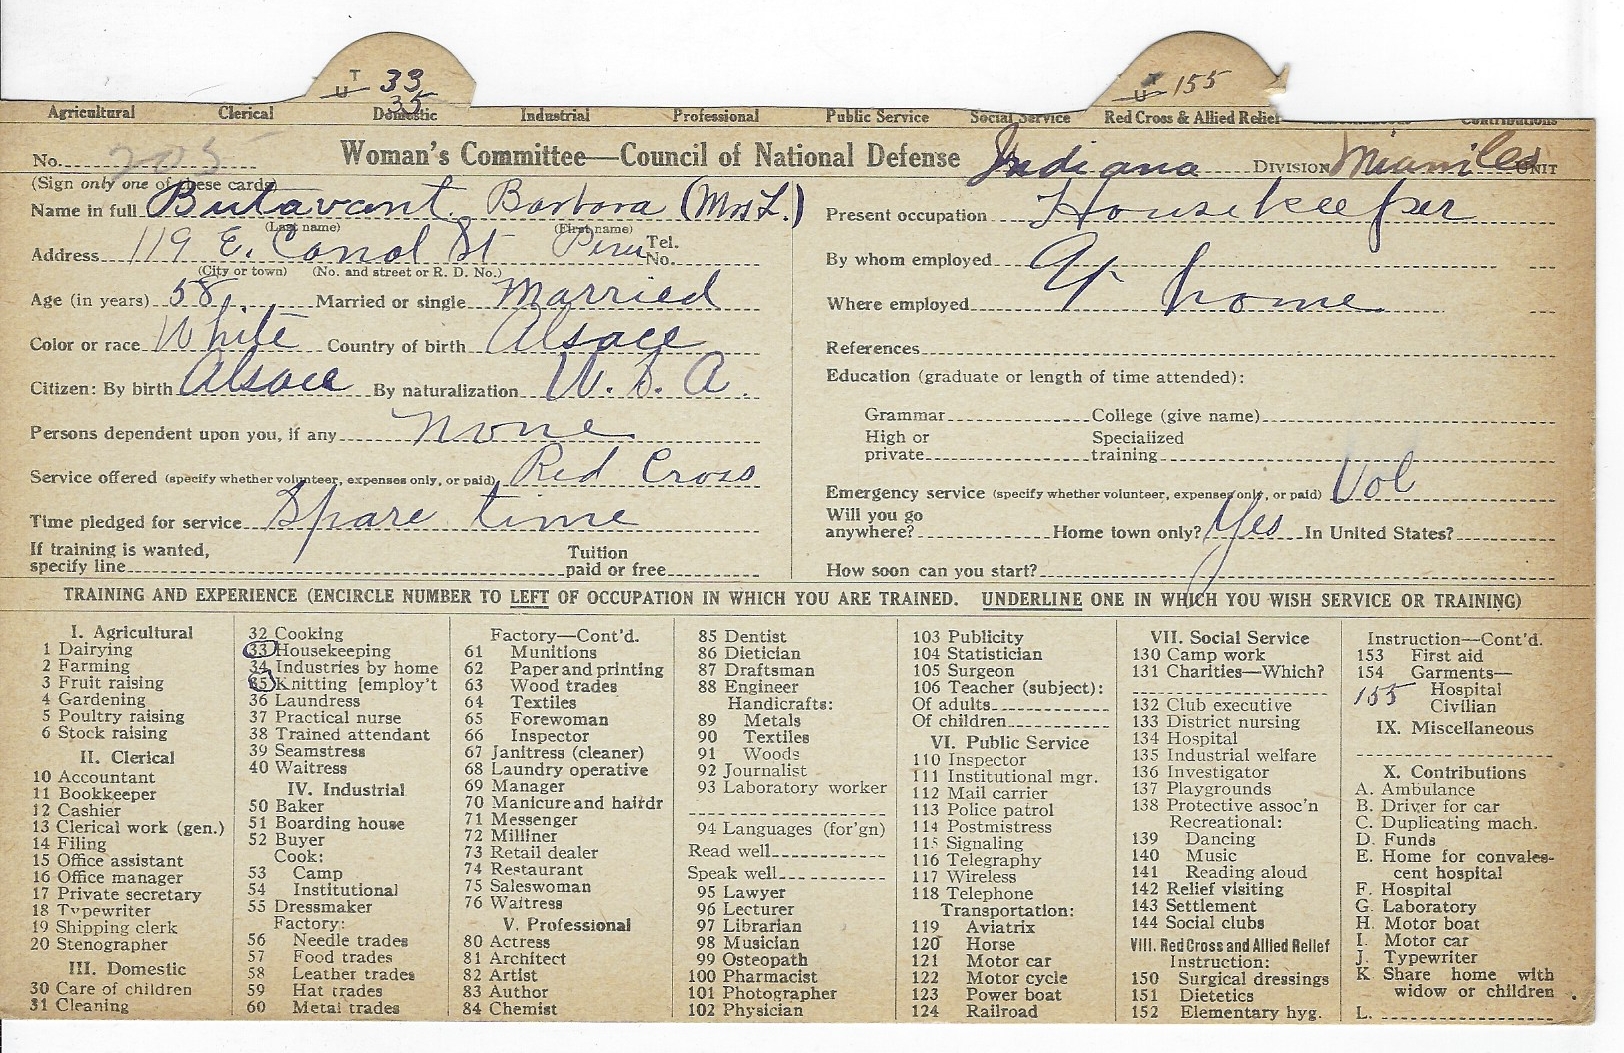 T 33
U 35
155
U
Agricultural Clerical Domestic Industrial Professional Public Service Social Service Red Cross & Allied Relief Miscellaneous Contributions
No. 205 Woman's Committee—Council of National Defense Indiana DIVISION Miami Co UNIT
(Sign only one of these cards)
Name in full Butavant Barbara (Mrs L.)
(Last name) (First name)
Address 119 E. Canal St Peru Tel. No.
(City or town) (No. and street or R. D. No.)
Age (in years) 58 Married or single Married
Color or race White Country of birth Alsace
Citizen: By birth Alsace By naturalization U. S. A.
Persons dependent upon you, if any none
Service offered (specify whether volunteer, expenses only, or paid) Red Cross
Time pledged for service Spare time
If training is wanted, specify line Tuition paid or free
Present occupation Housekeeper
By whom employed At
Where employed home
References
Education (graduate or length of time attended):
Grammar College (give name)
High or private Specialized training
Emergency service (specify whether volunteer, expenses only, or paid) Vol
Will you go anywhere? Home town only? Yes In United States?
How soon can you start?
TRAINING AND EXPERIENCE (ENCIRCLE NUMBER TO LEFT OF OCCUPATION IN WHICH YOU ARE TRAINED. UNDERLINE ONE IN WHICH YOU WISH SERVICE OR TRAINING)
I. Agricultural
1 Dairying
2 Farming
3 Fruit raising
4 Gardening
5 Poultry raising
6 Stock raising
II. Clerical
10 Accountant
11 Bookkeeper
12 Cashier
13 Clerical work (gen.)
14 Filing
15 Office assistant
16 Office manager
17 Private secretary
18 Typewriter
19 Shipping clerk
20 Stenographer
III. Domestic
30 Care of children
31 Cleaning
32 Cooking
33 Housekeeping
34 Industries by home
35 Knitting [employ't
36 Laundress
37 Practical nurse
38 Trained attendant
39 Seamstress
40 Waitress
IV. Industrial
50 Baker
51 Boarding house
52 Buyer
Cook:
53 Camp
54 Institutional
55 Dressmaker
Factory:
56 Needle trades
57 Food trades
58 Leather trades
59 Hat trades
60 Metal trades
Factory—Cont'd.
61 Munitions
62 Paper and printing
63 Wood trades
64 Textiles
65 Forewoman
66 Inspector
67 Janitress (cleaner)
68 Laundry operative
69 Manager
70 Manicure and hairdr
71 Messenger
72 Milliner
73 Retail dealer
74 Restaurant
75 Saleswoman
76 Waitress
V. Professional
80 Actress
81 Architect
82 Artist
83 Author
84 Chemist
85 Dentist
86 Dietician
87 Draftsman
88 Engineer
Handicrafts:
89 Metals
90 Textiles
91 Woods
92 Journalist
93 Laboratory worker
94 Languages (for'gn)
Read well
Speak well
95 Lawyer
96 Lecturer
97 Librarian
98 Musician
99 Osteopath
100 Pharmacist
101 Photographer
102 Physician
103 Publicity
104 Statistician
105 Surgeon
106 Teacher (subject):
Of adults
Of children
VI. Public Service
110 Inspector
111 Institutional mgr.
112 Mail carrier
113 Police patrol
114 Postmistress
115 Signaling
116 Telegraphy
117 Wireless
118 Telephone
Transportation:
119 Aviatrix
120 Horse
121 Motor car
122 Motor cycle
123 Power boat
124 Railroad
VII. Social Service
130 Camp work
131 Charities—Which?
132 Club executive
133 District nursing
134 Hospital
135 Industrial welfare
136 Investigator
137 Playgrounds
138 Protective assoc'n
Recreational:
139 Dancing
140 Music
141 Reading aloud
142 Relief visiting
143 Settlement
144 Social clubs
VIII. Red Cross and Allied Relief
Instruction:
150 Surgical dressings
151 Dietetics
152 Elementary hyg.
Instruction—Cont'd.
153 First aid
154 Garments—
155 Hospital
Civilian
IX. Miscellaneous
X. Contributions
A. Ambulance
B. Driver for car
C. Duplicating mach.
D. Funds
E. Home for convales-
cent hospital
F. Hospital
G. Laboratory
H. Motor boat
I. Motor car
J. Typewriter
K. Share home with
widow or children
L.